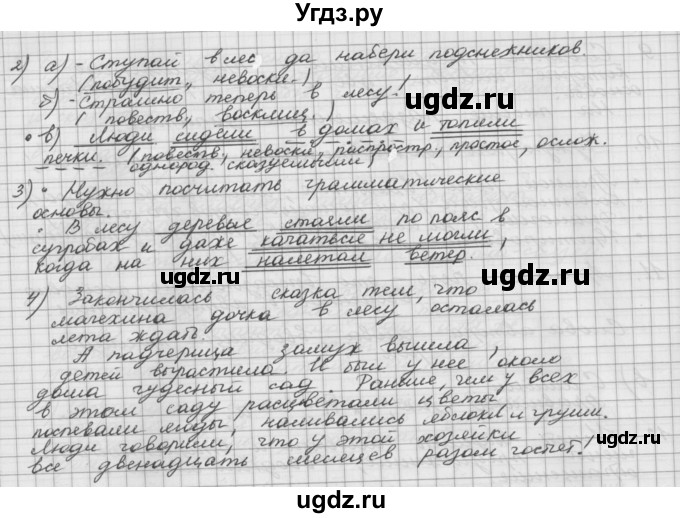 Угдз.ру
2) а) - Ступай в лес да набери подснежников.
(побудит., невоскл.)
б) - Страшно теперь в лесу!
(повеств., восклиц.)
• в) Люди сидели в домах и топили
печки. (повеств., невоскл., распростр., простое, ослож.
однород. сказуемыми)
3) • Нужно посчитать грамматические
основы.
• В лесу деревья стояли по пояс в
сугробах и даже качаться не могли,
когда на них налетал ветер.
4) Закончилась сказка тем, что
мачехина дочка в лесу осталась
лета ждать.
А падчерица замуж вышла,
детей вырастила. И был у неё около
дома чудесный сад. Раньше, чем у всех
в этом саду расцветали цветы,
поспевали ягоды, наливались яблоки и груши.
Люди говорили, что у этой хозяйки
все двенадцать месяцев разом гостят!
ugdz.ru
ugdz.ru
ugdz.ru
ugdz.ru
ugdz.ru
ugdz.ru
ugdz.ru
ugdz.ru